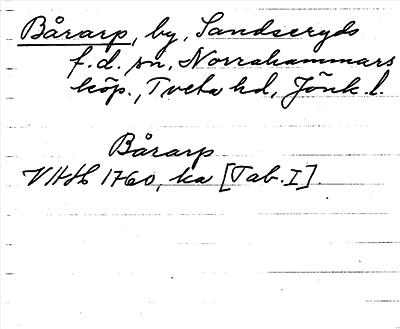 Bårarp, by, Sandseryds
f.d. sn, Norrahammars
köp., Tveta hd, Jönk. l.
Bårarp
VHAH 1760, ka [Tab. I].